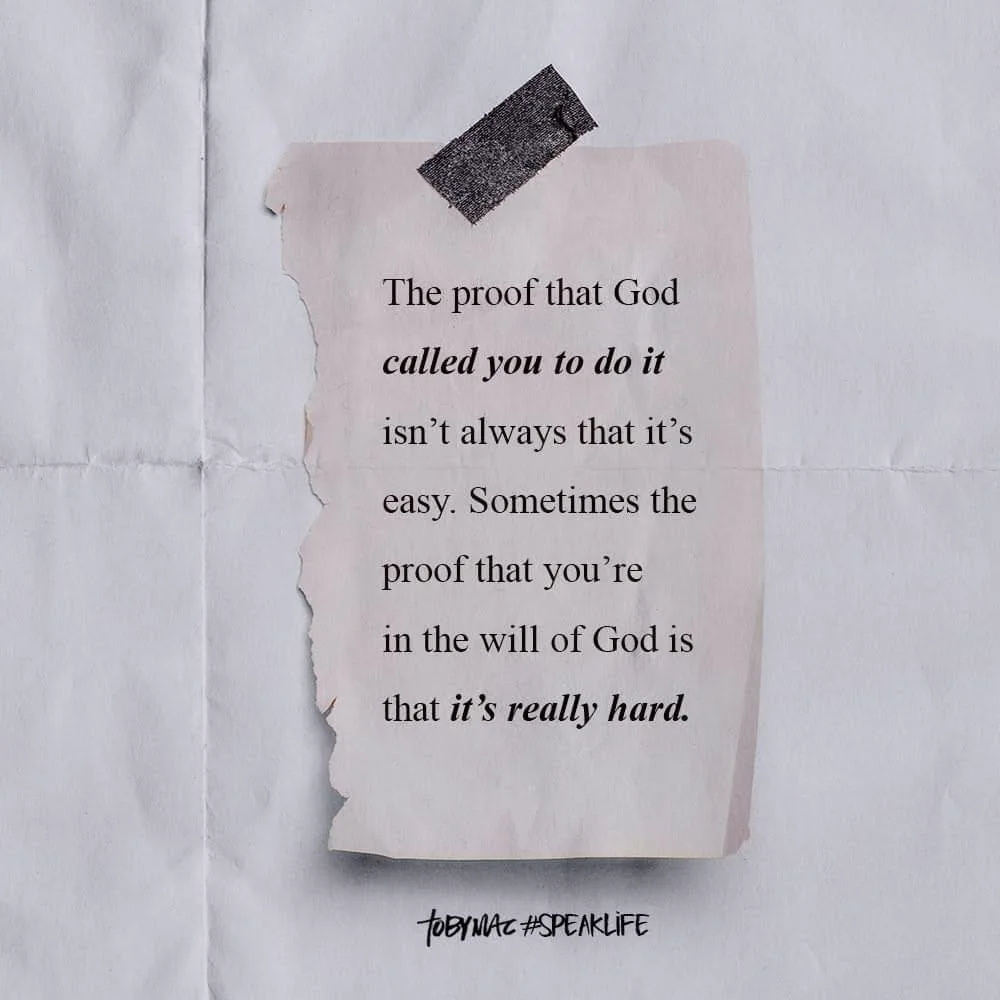 The proof that God
called you to do it
isn’t always that it’s
easy. Sometimes the
proof that you’re
in the will of God is
that it’s really hard.
TOBYMAC #SPEAKLIFE